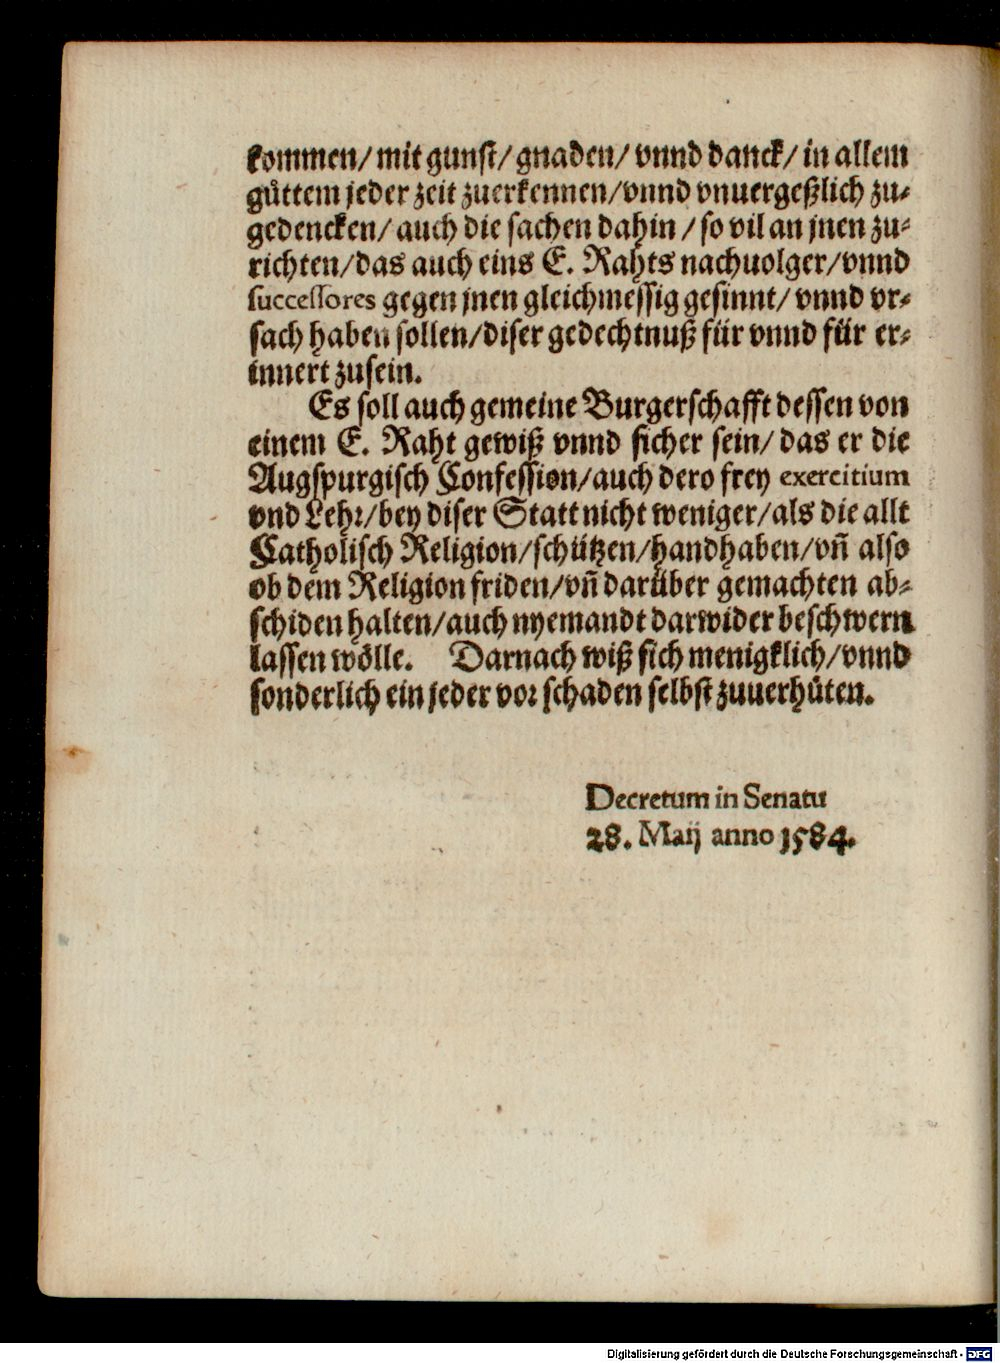 kommen/ mit gunst/ gnaden/ vnnd danck/ in allem
guͤttem jeder zeit zuerkennen/ vnnd vnuergeßlich zu-
gedencken/ auch die sachen dahin / so vil an jnen zu-
richten/ das auch eins E. Rahts nachuolger/ vnnd
successores gegen jnen gleichmessig gesinnt/ vnnd vr-
sach haben sollen/ diser gedechtnuß für vnnd für er-
innert zusein.
Es soll auch gemeine Burgerschafft dessen von
einem E. Raht gewiß vnnd sicher sein/ das er die
Augspurgisch Confession/ auch dero frey exercitium
vnd Lehr/ bey diser Statt nicht weniger/ als die allt
Catholisch Religion/ schützen/ handhaben/ vñ also
ob dem Religion friden/ vñ darüber gemachten ab-
schiden halten/ auch nyemandt darwider beschwern
lassen woͤlle. Darnach wiß sich menigklich/ vnnd
sonderlich ein jeder vor schaden selbst zuuerhuͤten.
Decretum in Senatu
28. Maij anno 1584.
Digitalisierung gefördert durch die Deutsche Forschungsgemeinschaft - DFG